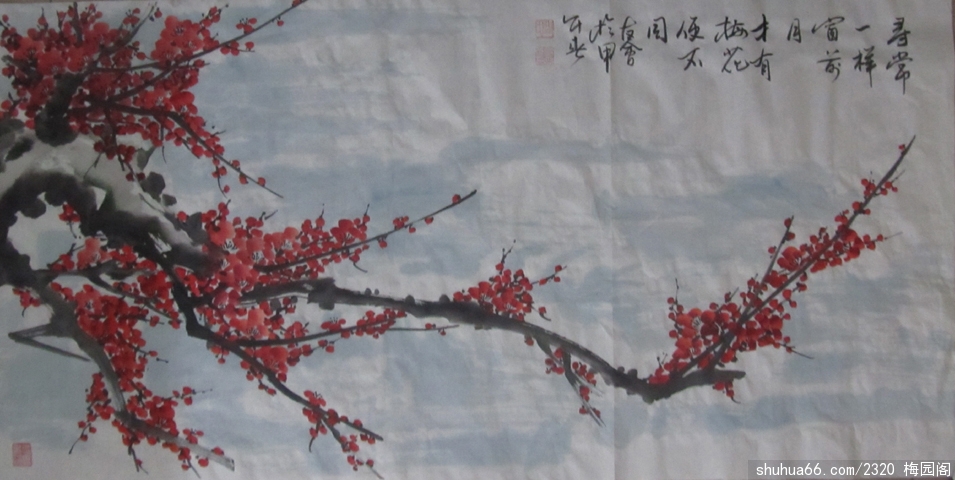 寻常
一样
窗前
月
才有
梅花
便不
同
於甲
shuhua66.com/2320 梅园阁